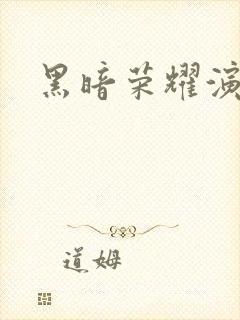 黑暗荣耀演
道姆